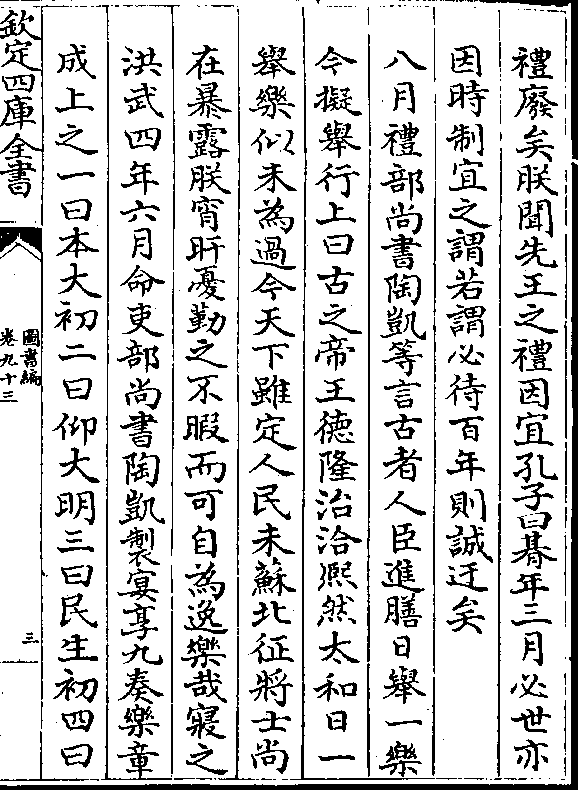 禮廢矣朕聞先王之禮因宜孔子曰朞年三月必世亦
因時制宜之謂若謂必待百年則誠迂矣
八月禮部尚書陶凱等言古者人臣進膳日舉一樂
今擬舉行上曰古之帝王德隆治洽熙然太和日一
舉樂似未為過今天下雖定人民未蘇北征將士尚
在暴露朕宵旰憂勤之不暇而可自為逸樂哉寢之
洪武四年六月命吏部尚書陶凱製宴享九奏樂章
成上之一曰本大初二曰仰大明三曰民生初四曰
欽定四庫全書
圖書編
卷九十三
三